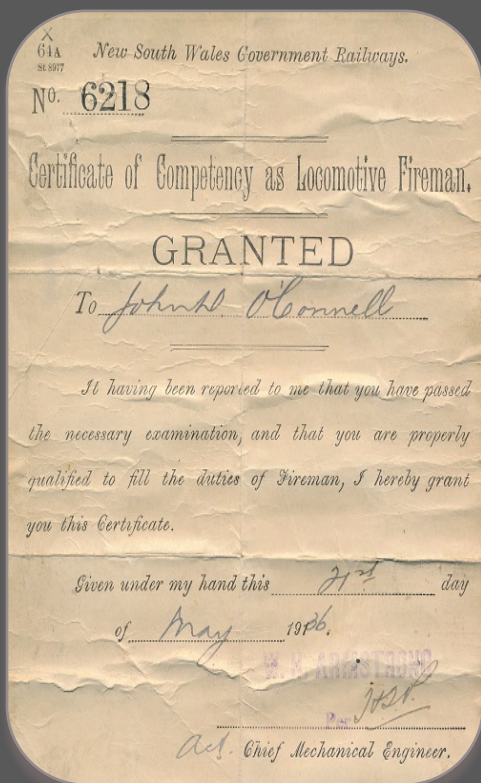 X
64A
St. 8977
New South Wales Government Railways.
No. 6218
Certificate of Competency as Locomotive Fireman.
GRANTED
To John O'Connell
It having been reported to me that you have passed
the necessary examination, and that you are properly
qualified to fill the duties of Fireman, I hereby grant
you this Certificate.
Given under my hand this 21st day
of May 1936.
W. H. ARMSTRONG
Per
Act. Chief Mechanical Engineer.